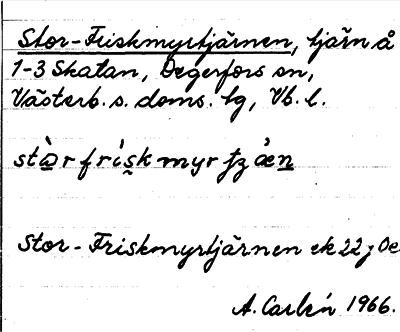 Stor-Friskmyrtjärnen, tjärn å
1-3 Skatan, Degerfors sn,
Västerb. s. doms. lg, Vb. l.
Stor-Friskmyrtjärnen ek 22 j Oe
A. Carlén 1966.